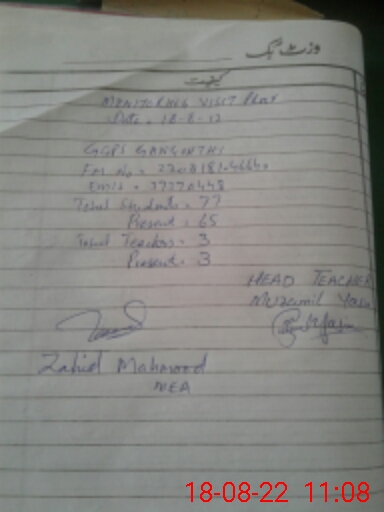 وزٹ بک
کیفیت
MONITORING VISIT
Date: 18-8-
GGPS
EMIS = 37370448
Total Students = 77
Present = 65
Total Teachers = 3
Present = 3
HEAD TEACHER
Muzamil
Zahid Mahmood
MEA
18-08-22 11:08